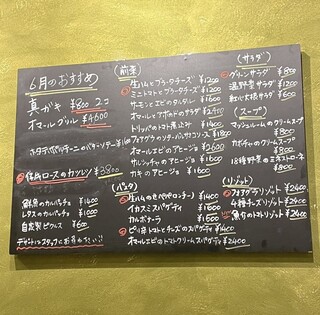 6月のおすすめ
真ガキ ¥800 2コ
オマールグリル ¥4600
ホタテのポルチーニのバターソテー ¥1600
仔牛ロースのカツレツ ¥3800
鮮魚のカルパッチョ ¥1400
レタスのカルパッチョ ¥1000
自家製ピクルス ¥600
デザートはスタッフにお尋ね下さい!!
(前菜)
生ハムとブラータチーズ ¥1200
ミニトマトとブラータチーズ ¥1200
サーモンとエビのタルタル ¥1600
オマールとアボカドのサラダ
トリッパのトマト煮込み ¥1400
フォアグラのソテーバルサミコソース ¥1800
オマールエビのアヒージョ ¥2600
サルシッチャのアヒージョ ¥1600
カキのアヒージョ ¥1600
(パスタ)
生ハムのペペロンチーノ ¥1400
イカスミスパゲティ ¥1600
カルボナーラ ¥1600
ピリ辛トマトとチーズのスパゲティ ¥1400
オマールエビのトマトクリームスパゲティ ¥2400
(サラダ)
グリーンサラダ ¥800
温野菜サラダ ¥1200
紅心大根サラダ ¥600
(スープ)
マッシュルームのクリームスープ ¥800
カボチャのクリームスープ ¥800
18種野菜のミネストローネ ¥800
(リゾット)
フォアグラリゾット ¥2400
4種チーズリゾット ¥2400
魚介のトマトリゾット ¥2400